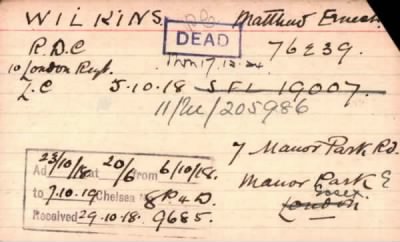 WILKINS, Matthew Ernest.
DEAD
R.D.C 76239.
10 London Regt. 17.12.24
L.C 5.10.18 SFL 19007.
11/M/205986
7 Manor Park Rd.
Manor Park E
Essex.
London
Ad 23/10/18 at 20/6 from 6/10/18.
to 7.10.19 Chelsea 8P4D.
Received 29.10.18. 9685.